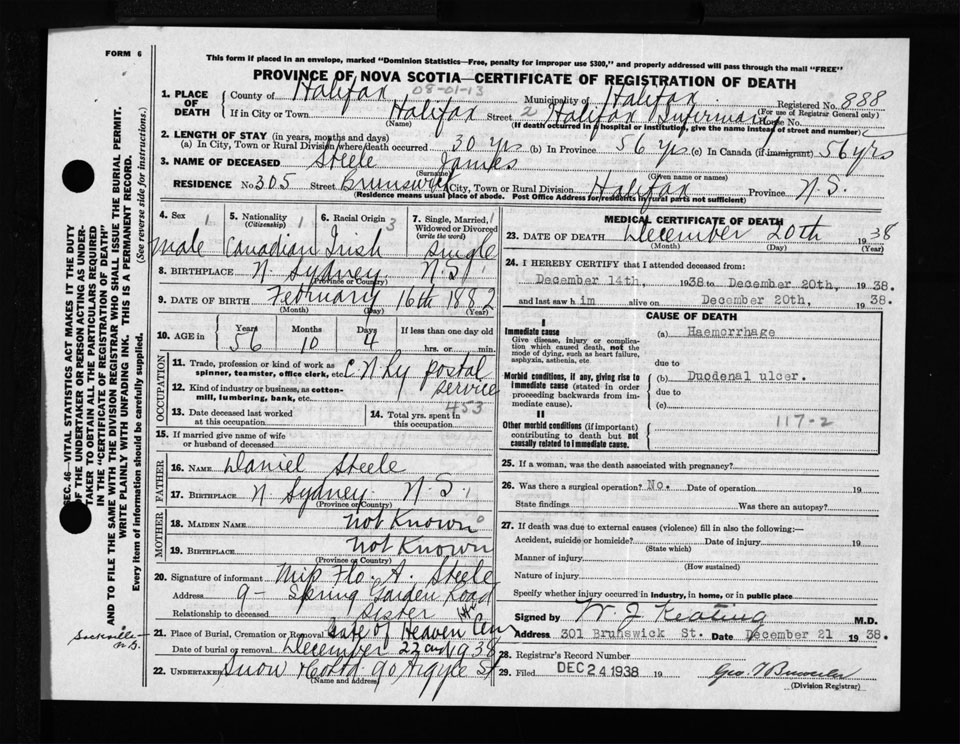 FORM 6
This form if placed in an envelope, marked "Dominion Statistics—Free, penalty for improper use $300," and properly addressed will pass through the mail "FREE"
PROVINCE OF NOVA SCOTIA—CERTIFICATE OF REGISTRATION OF DEATH
SEC. 46 - VITAL STATISTICS ACT MAKES IT THE DUTY
OF THE UNDERTAKER OR PERSON ACTING AS UNDER-
TAKER TO OBTAIN ALL THE PARTICULARS REQUIRED
IN THE "CERTIFICATE OF REGISTRATION OF DEATH"
AND TO FILE THE SAME WITH THE DIVISION REGISTRAR WHO SHALL ISSUE THE BURIAL PERMIT.
WRITE PLAINLY WITH UNFADING INK. THIS IS A PERMANENT RECORD.
Every item of information should be carefully supplied. (See reverse side for instructions.)
1. PLACE OF DEATH County of Halifax 08-01-13 Municipality of Halifax Registered No. 888
(For use of Registrar General only)
If in City or Town Halifax Street 2 Halifax House No.
(Name) (If death occurred in hospital or institution, give the name instead of street and number)
2. LENGTH OF STAY (in years, months and days)
(a) In City, Town or Rural Division where death occurred 30 yrs (b) In Province 56 yrs (c) In Canada (if immigrant) 56 yrs
3. NAME OF DECEASED Steele James
(Surname) (Given name or names)
RESIDENCE No. 305 Street Brunswick City, Town or Rural Division Halifax Province N.S.
(Residence means usual place of abode. Post Office Address for residents in rural parts not sufficient)
4. Sex 1 5. Nationality 1 (Citizenship) 6. Racial Origin 3 7. Single, Married, Widowed or Divorced (write the word) 1
Male Canadian Irish Single
8. BIRTHPLACE N. Sydney N.S. 1
(Province or Country)
9. DATE OF BIRTH February 16th 1882
(Month) (Day) (Year)
10. AGE in Years Months Days If less than one day old
56 10 4 hrs. or min.
OCCUPATION
11. Trade, profession or kind of work as spinner, teamster, office clerk, etc. C N Ry postal
12. Kind of industry or business, as cotton-mill, lumbering, bank, etc. service
453
13. Date deceased last worked at this occupation
14. Total yrs. spent in this occupation
15. If married give name of wife or husband of deceased
FATHER
16. NAME Daniel Steele
17. BIRTHPLACE N. Sydney N.S. 1
(Province or Country)
MOTHER
18. MAIDEN NAME not Known 0
19. BIRTHPLACE not Known
(Province or Country)
20. Signature of informant Miss Flo. A. Steele
Address 9 - Spring Garden Road
Relationship to deceased Sister
21. Place of Burial, Cremation or Removal Gate of Heaven Cem
Sackville - N.S.
Date of burial or removal December 22nd 1938
22. UNDERTAKER Snow & Co Ltd. 90 Argyle St
(Name and address)
MEDICAL CERTIFICATE OF DEATH
23. DATE OF DEATH December 20th 1938
(Month) (Day) (Year)
24. I HEREBY CERTIFY that I attended deceased from:
December 14th, 1938 to December 20th, 1938.
and last saw him alive on December 20th, 1938.
CAUSE OF DEATH
I
Immediate cause (a) Haemorrhage
Give disease, injury or complication which caused death, not the mode of dying, such as heart failure, asphyxia, asthenia, etc.
due to
Morbid conditions, if any, giving rise to immediate cause (stated in order proceeding backwards from immediate cause). (b) Duodenal ulcer.
due to
(c)
II
Other morbid conditions (if important) contributing to death but not causally related to immediate cause.
117-2
25. If a woman, was the death associated with pregnancy?
26. Was there a surgical operation? No. Date of operation 19
State findings Was there an autopsy?
27. If death was due to external causes (violence) fill in also the following:—
Accident, suicide or homicide? Date of injury 19
(State which)
Manner of injury
(How sustained)
Nature of injury
Specify whether injury occurred in industry, in home, or in public place
Signed by W. J. Keating M.D.
Address 301 Brunswick St. Date December 21 1938.
28. Registrar's Record Number
29. Filed DEC 24 1938 19
(Division Registrar)